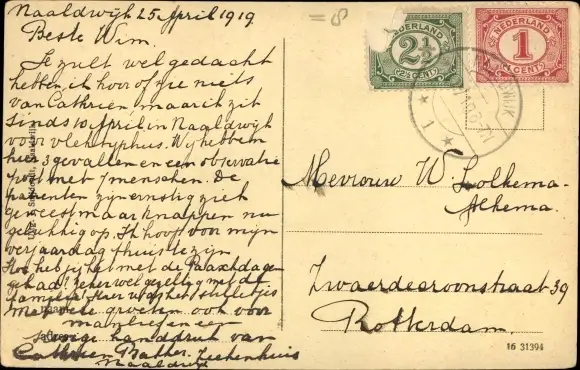 Naaldwijk 25 April 1919
Beste Wim.
Je zult wel gedacht
hebben, ik hoor of zie niets
van Cathrien maar ik zit
sinds 10 April in Naaldwijk
voor vlektyphus. Wij hebben
hier 3 gevallen en een observatie
post met 7 menschen. De
patienten zijn ernstig ziek
geweest maar knappen nu
gelukkig op. Ik hoop voor mijn
verjaardag thuis te zijn
Hoe heb jij het met de Paaschdagen
gehad? Zeker wel gezellig met de
familie. Hier was het stilletjes
Met vele groeten ook voor
man
en een
handdruk van
Cathrien Bakker. Ziekenhuis
Naaldwijk
NEDERLAND
2½
2½ CENTS
NEDERLAND
1
CENT
Mevrouw W. Lolkema-
Alkema.
Zwaerdecroonstraat 39
Rotterdam.
16 31394